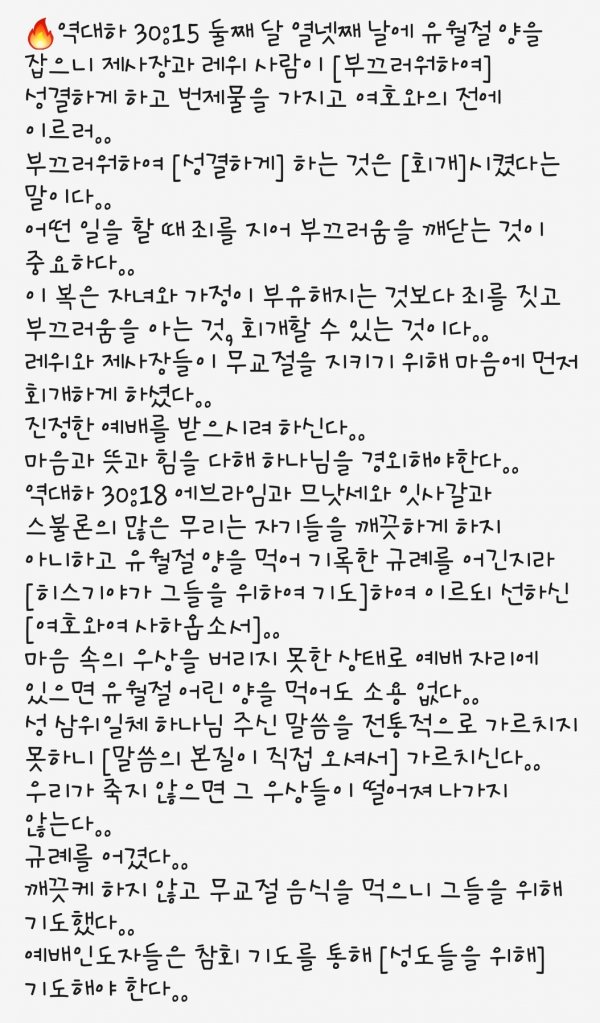 🔥역대하 30:15 둘째 달 열넷째 날에 유월절 양을
잡으니 제사장과 레위 사람이 [부끄러워하여]
성결하게 하고 번제물을 가지고 여호와의 전에
이르러..
부끄러워하여 [성결하게] 하는 것은 [회개]시켰다는
말이다..
어떤 일을 할 때 죄를 지어 부끄러움을 깨닫는 것이
중요하다..
이 복은 자녀와 가정이 부유해지는 것보다 죄를 짓고
부끄러움을 아는 것, 회개할 수 있는 것이다..
레위와 제사장들이 무교절을 지키기 위해 마음에 먼저
회개하게 하셨다..
진정한 예배를 받으시려 하신다..
마음과 뜻과 힘을 다해 하나님을 경외해야한다..
역대하 30:18 에브라임과 므낫세와 잇사갈과
스불론의 많은 무리는 자기들을 깨끗하게 하지
아니하고 유월절 양을 먹어 기록한 규례를 어긴지라
[히스기야가 그들을 위하여 기도]하여 이르되 선하신
[여호와여 사하옵소서]..
마음 속의 우상을 버리지 못한 상태로 예배 자리에
있으면 유월절 어린 양을 먹어도 소용 없다..
성 삼위일체 하나님 주신 말씀을 전통적으로 가르치지
못하니 [말씀의 본질이 직접 오셔서] 가르치신다..
우리가 죽지 않으면 그 우상들이 떨어져 나가지
않는다..
규례를 어겼다..
깨끗케 하지 않고 무교절 음식을 먹으니 그들을 위해
기도했다..
예배인도자들은 참회 기도를 통해 [성도들을 위해]
기도해야 한다..